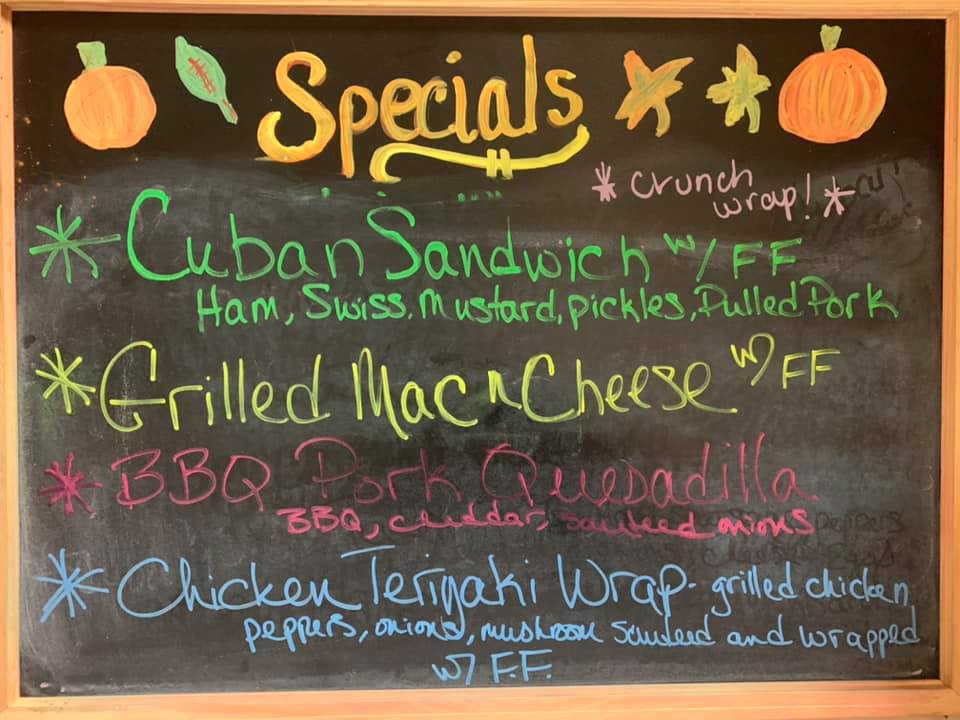 Specials
* crunch
wrap! *
* Cuban Sandwich w/ FF
Ham, Swiss, Mustard, pickles, Pulled Pork
* Grilled Mac n Cheese w/ FF
* BBQ Pork Quesadilla
BBQ, cheddar, sauteed onions
* Chicken Teriyaki Wrap - grilled chicken,
peppers, onions, mushroom sauteed and wrapped
w/ F.F.